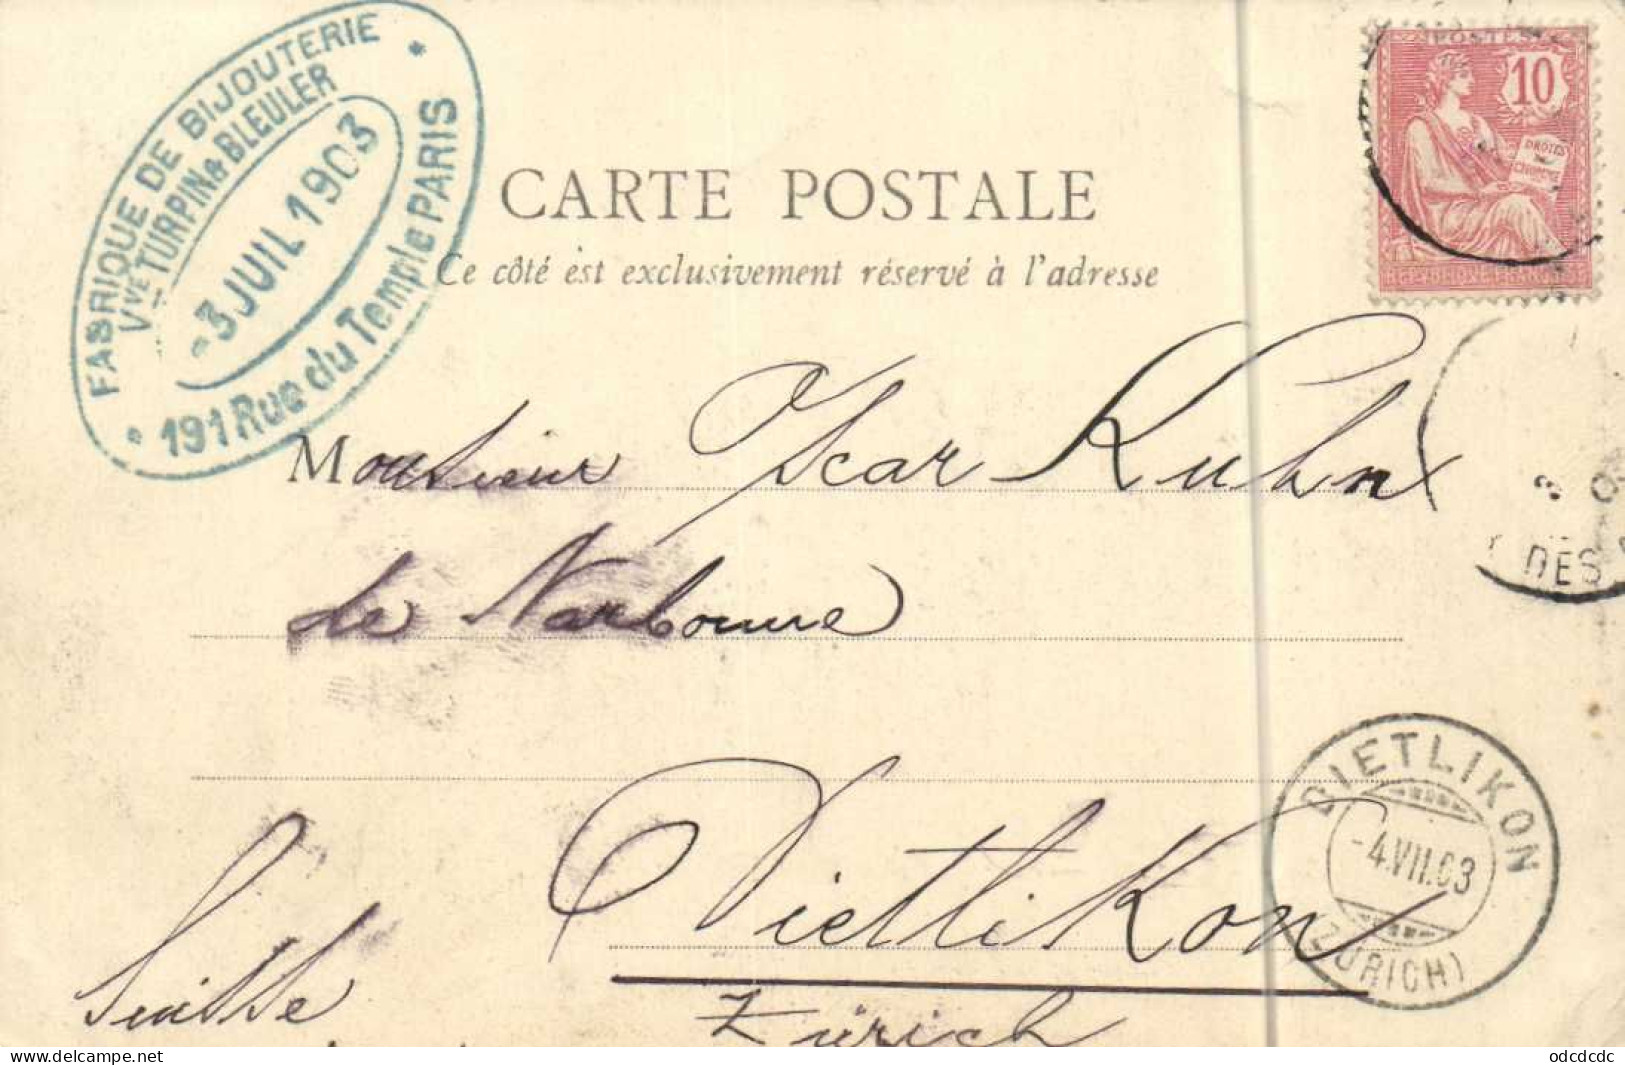 FABRIQUE DE BIJOUTERIE
Vve TURPIN & BLEULER
-3 JUIL 1903
191 Rue du Temple PARIS
POSTES
10
DROITS
DE
L'HOMME
CARTE POSTALE
Ce côté est exclusivement réservé à l'adresse
Monsieur Oscar Kuhn
de Narbonne
3
DES
DIETLIKON
-4.VII.03
(ZÜRICH)
Dietlikon
Suisse
Zürich
www.delcampe.net
odcdcdc